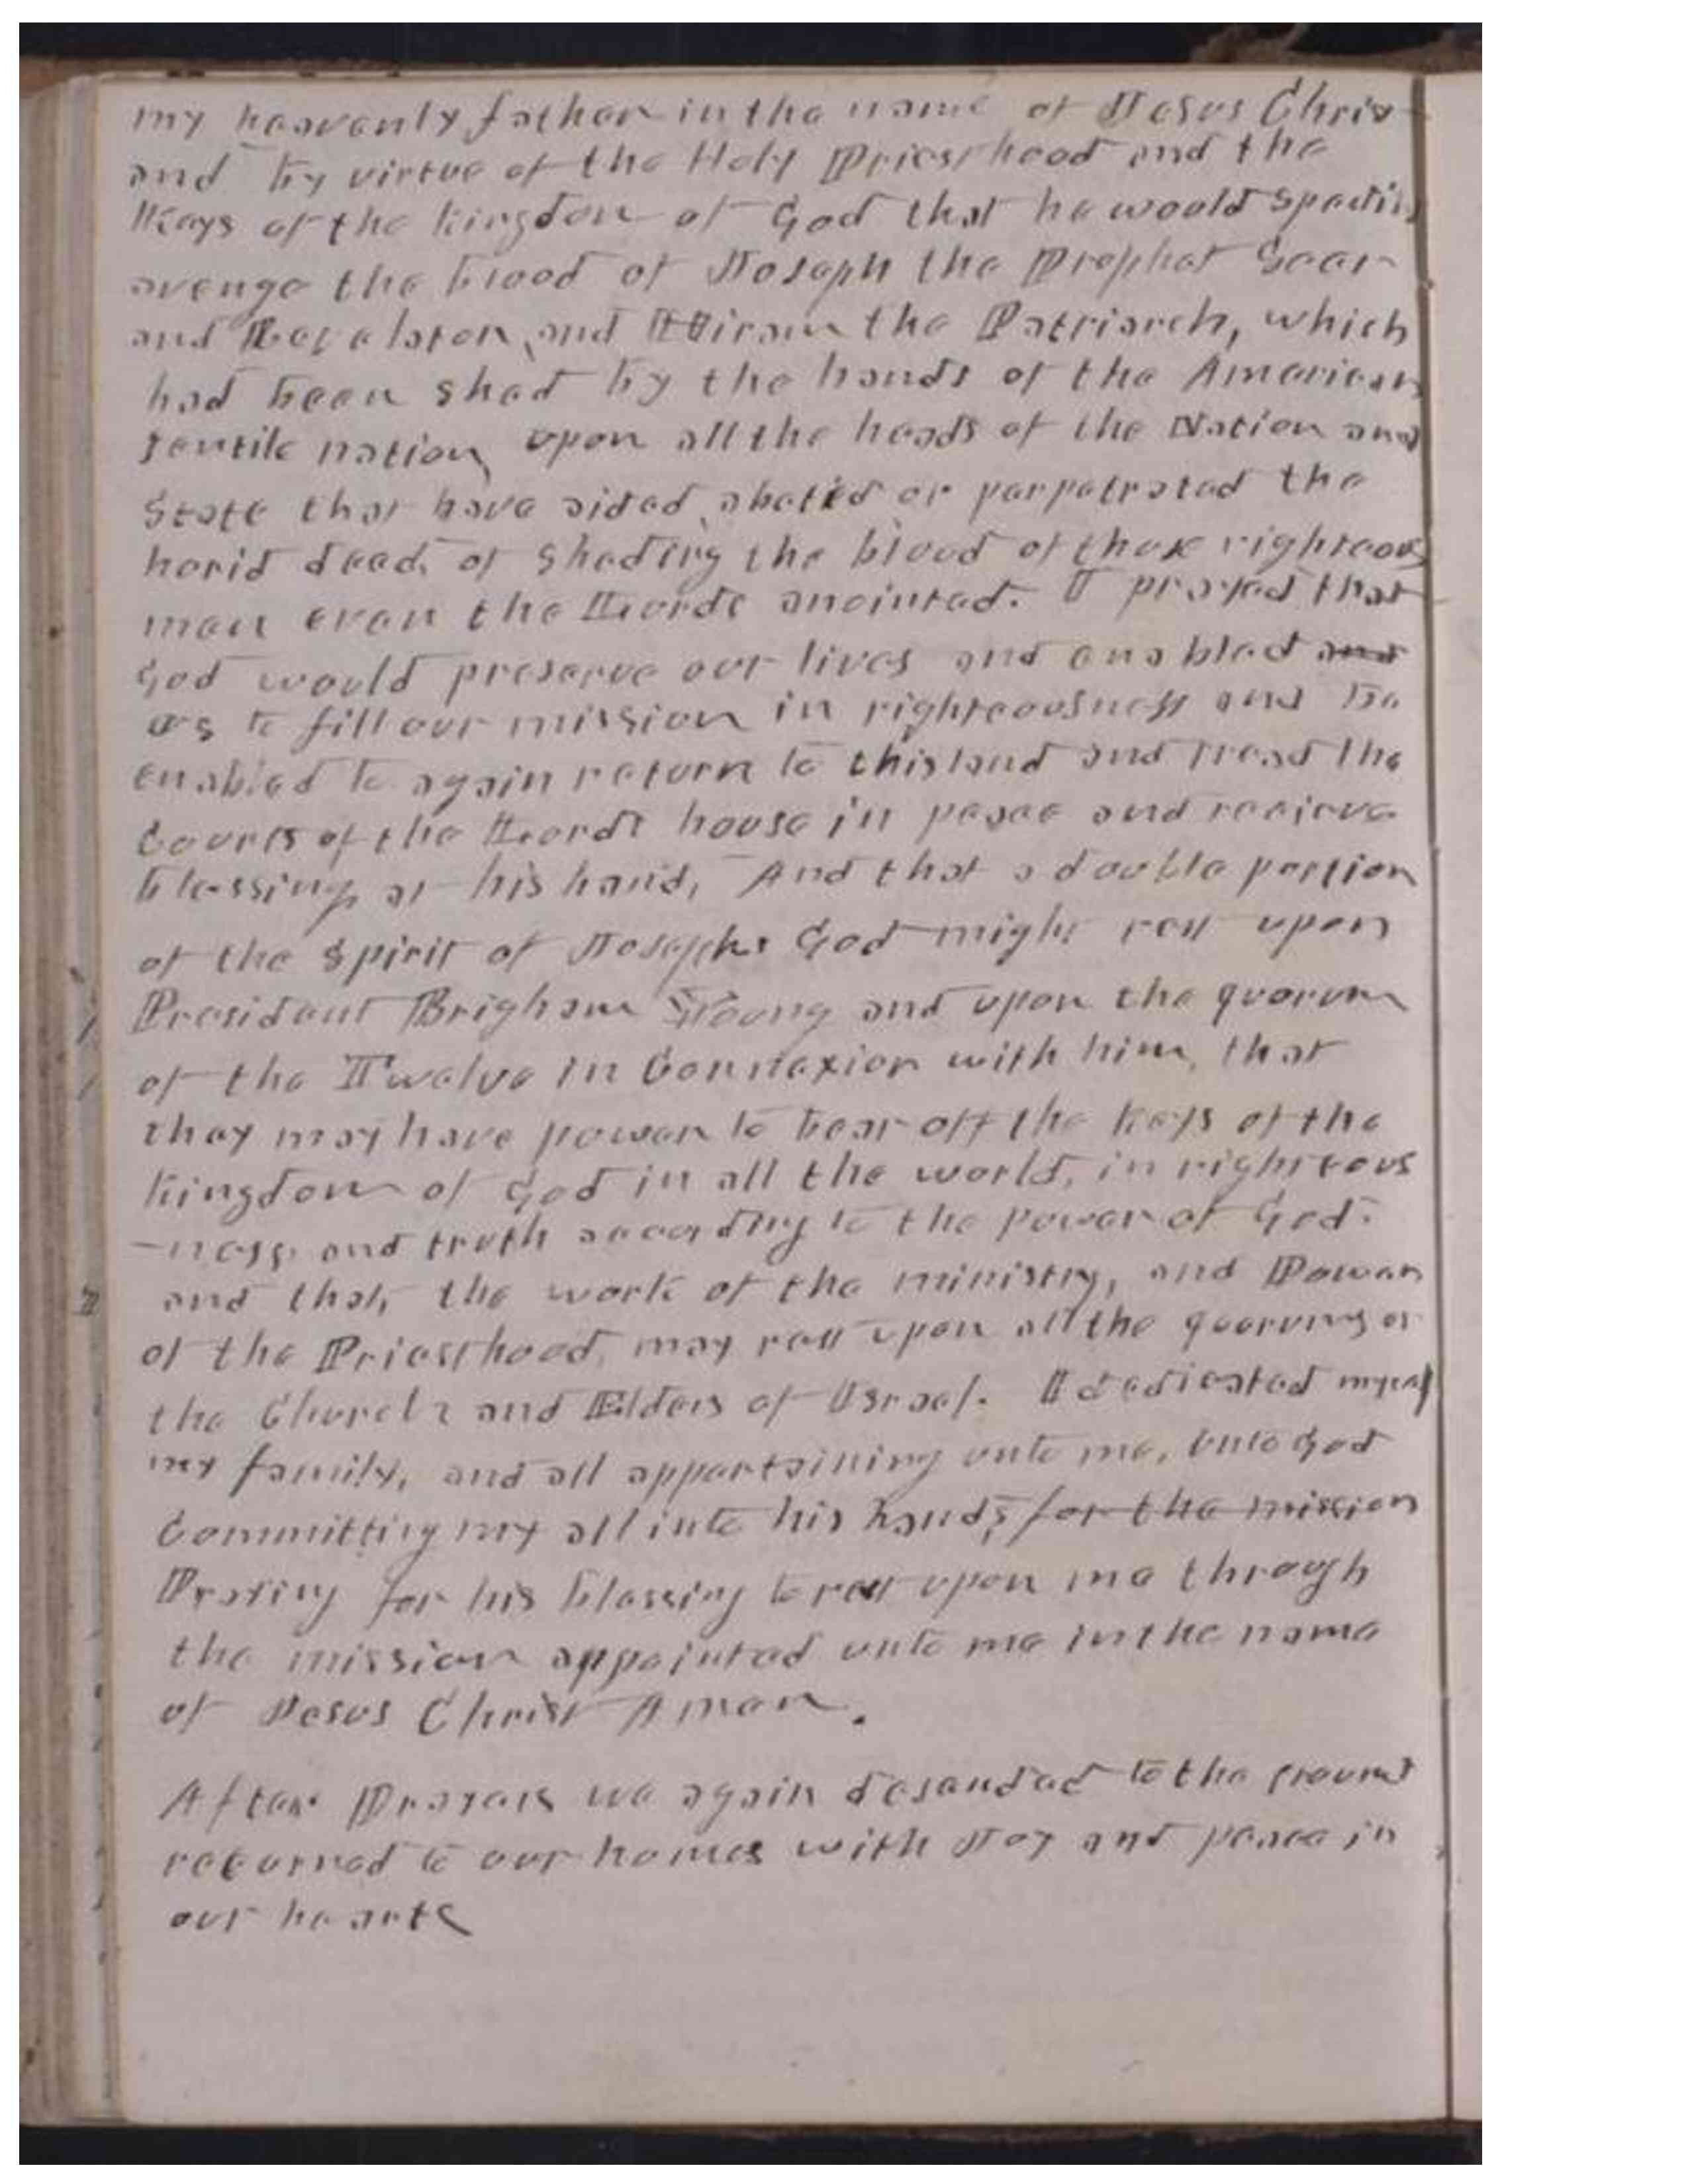 my heavenly father in the name of Jesus Chris
and by virtue of the Holy Priesthood and the
Keys of the kingdom of God that he would speedily
avenge the blood of Joseph the Prophet Seer
and Revelator, and Hiram the Patriarch, which
had been shed by the hands of the American
gentile nation, upon all the heads of the Nation and
State that have aided, abeted or perpetrated the
horid deed, of sheding the blood of those righteous
men even the Lords anointed. I prayed that
God would preserve our lives and enabled and
us to fill our mission in righteousness and be
enabled to again return to this land and tread the
Courts of the Lords house in peace and recieve
blessings at his hand, And that a double portion
of the spirit of Josephs God might rest upon
President Brigham Young and upon the quorum
of the Twelve in Connexion with him, that
they may have power to bear off the keys of the
kingdom of God in all the world, in righteous
-ness, and truth according to the power of God.
and that, the work of the ministry, and Power
of the Priesthood, may rest upon all the quorums of
the Church and Elders of Israel. I dedicated myself
my family, and all appertaining unto me, unto God
Committing my all into his hands, for the mission
Praying for his blessing to rest upon me through
the mission appointed unto me in the name
of Jesus Christ Amen.
After Prayers we again desended to the ground
returned to our homes with Joy and peace in
our hearts